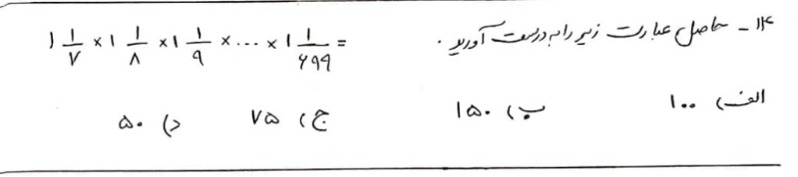 ۱۴- حاصل عبارت زیر را به درست آورید.
۱ ۱/۷ × ۱ ۱/۸ × ۱ ۱/۹ × ... × ۱ ۱/۶۹۹ =
الف) ۱۰۰ ب) ۱۵۰ ج) ۷۵ د) ۵۰